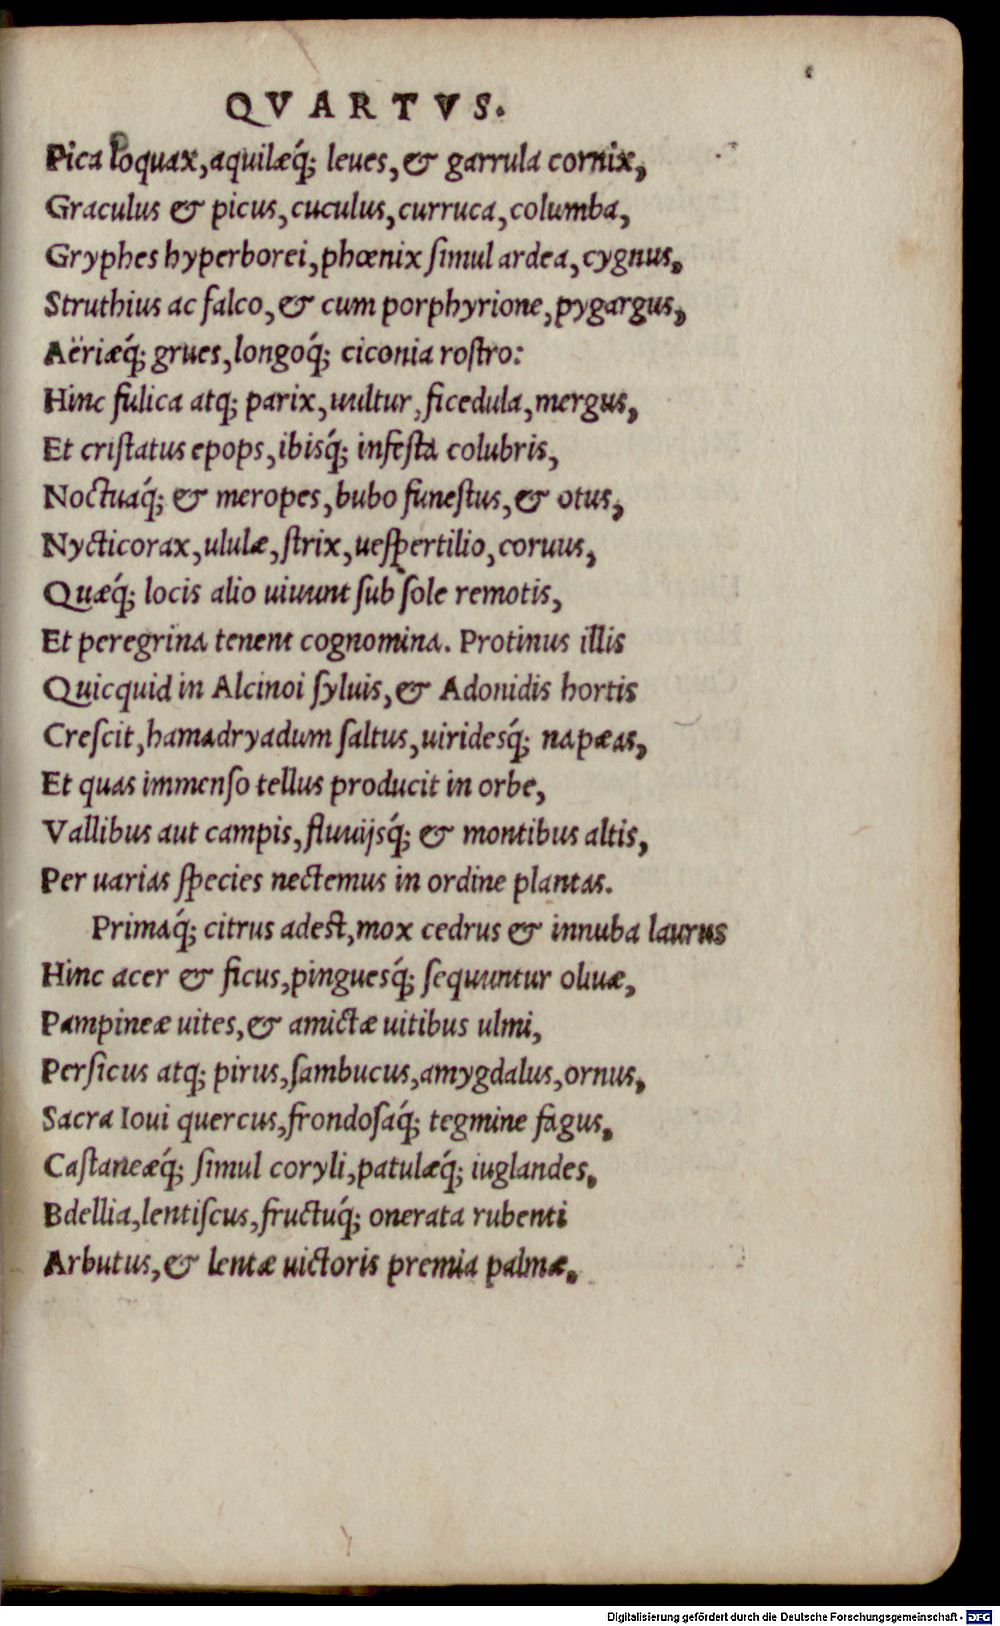 QVARTVS.
Pica loquax, aquilæq́; leues, & garrula cornix,
Graculus & picus, cuculus, curruca, columba,
Gryphes hyperborei, phœnix ſimul ardea, cygnus,
Struthius ac falco, & cum porphyrione, pygargus,
Aëriæq́; grues, longoq́; ciconia roſtro:
Hinc fulica atq; parix, uultur, ficedula, mergus,
Et criſtatus epops, ibisq́; infeſta colubris,
Noctuaq́; & meropes, bubo funeſtus, & otus,
Nycticorax, ululæ, ſtrix, ueſpertilio, coruus,
Quæq́; locis alio uiuunt ſub ſole remotis,
Et peregrina tenent cognomina. Protinus illis
Quicquid in Alcinoi ſyluis, & Adonidis hortis
Creſcit, hamadryadum ſaltus, uiridesq́; napæas,
Et quas immenſo tellus producit in orbe,
Vallibus aut campis, fluuijsq́; & montibus altis,
Per uarias ſpecies nectemus in ordine plantas.
Primaq́; citrus adeſt, mox cedrus & innuba laurus
Hinc acer & ficus, pinguesq́; ſequuntur oliuæ,
Pampineæ uites, & amictæ uitibus ulmi,
Perſicus atq; pirus, ſambucus, amygdalus, ornus,
Sacra Ioui quercus, frondoſaq́; tegmine fagus,
Caſtaneæq́; ſimul coryli, patulæq́; iuglandes,
Bdellia, lentiſcus, fructuq́; onerata rubenti
Arbutus, & lentæ uictoris premia palmæ,
Digitalisierung gefördert durch die Deutsche Forschungsgemeinschaft - DFG